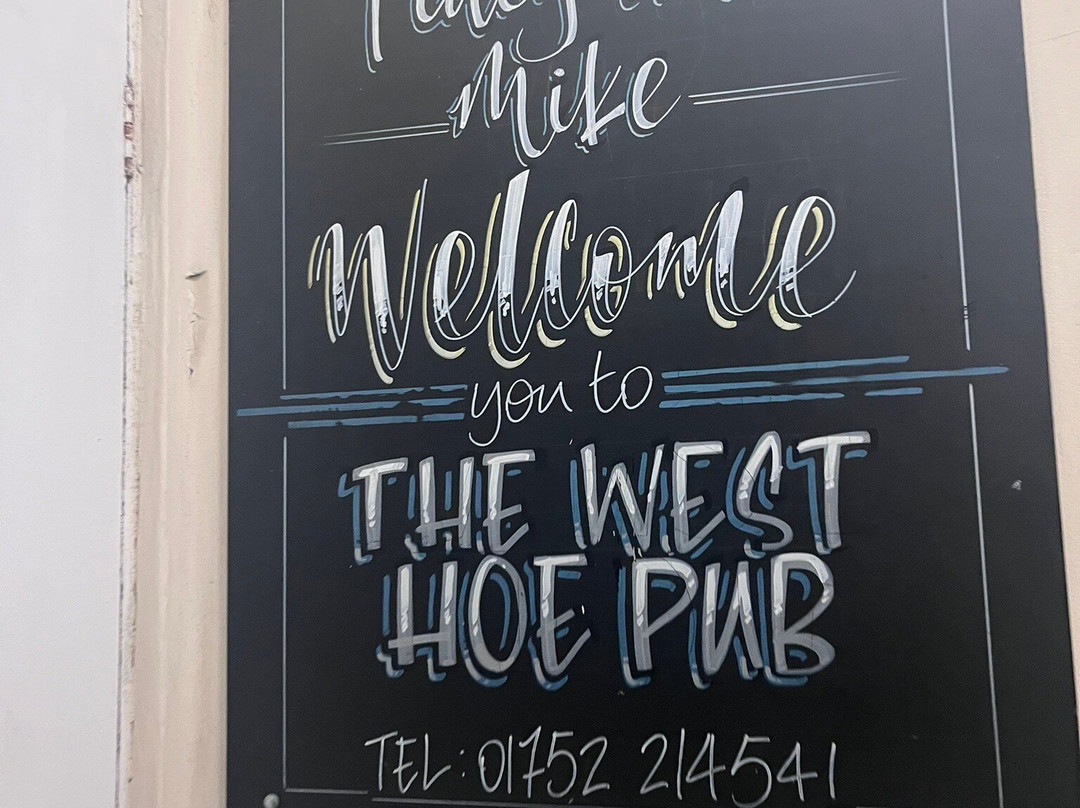 Mike
Welcome
you to
THE WEST
HOE PUB
TEL: 01752 214541